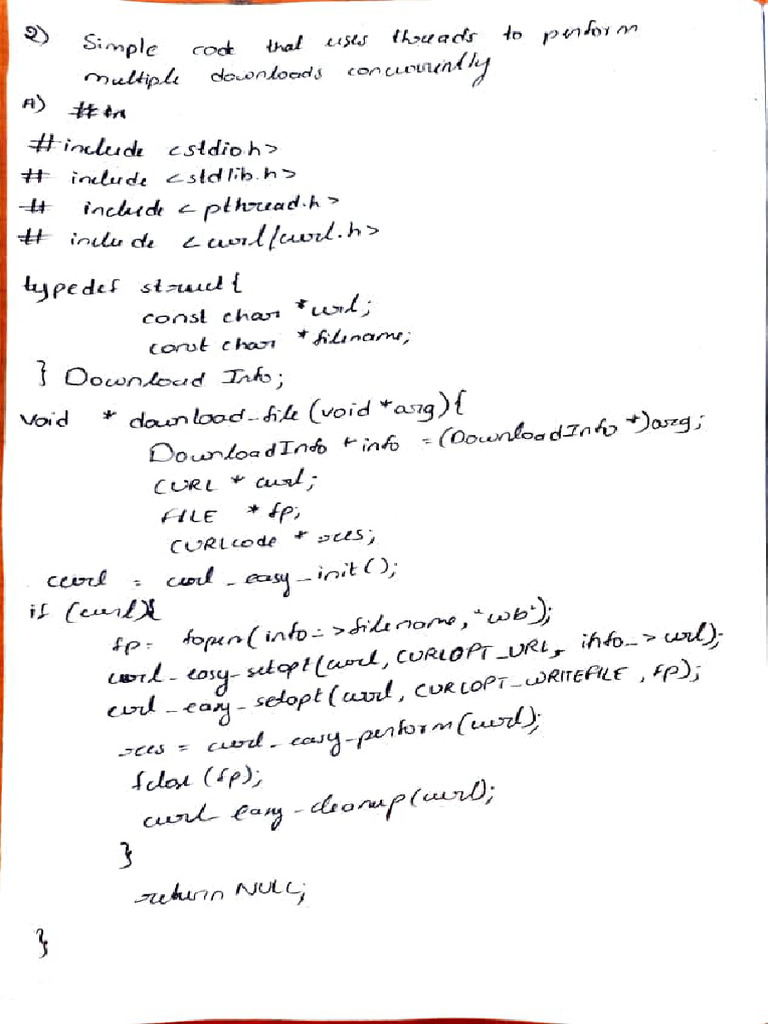 2) Simple code that uses threads to perform
multiple downloads concurrently
A) #in
#include <stdio.h>
# include <stdlib.h>
# include <pthread.h>
# include <curl/curl.h>
typedef struct {
const char *url;
const char *filename;
} Download Info;
void * download_file (void *arg) {
DownloadInfo * info = (DownloadInfo *)arg;
CURL * curl;
FILE * fp;
CURLcode * res;
curl = curl_easy_init();
if (curl){
fp = fopen(info->filename, "wb");
curl_easy_setopt(curl, CURLOPT_URL, info->url);
curl_easy_setopt(curl, CURLOPT_WRITEFILE, fp);
res = curl_easy_perform(curl);
fclose (fp);
curl easy_cleanup(curl);
}
return NULL;
}